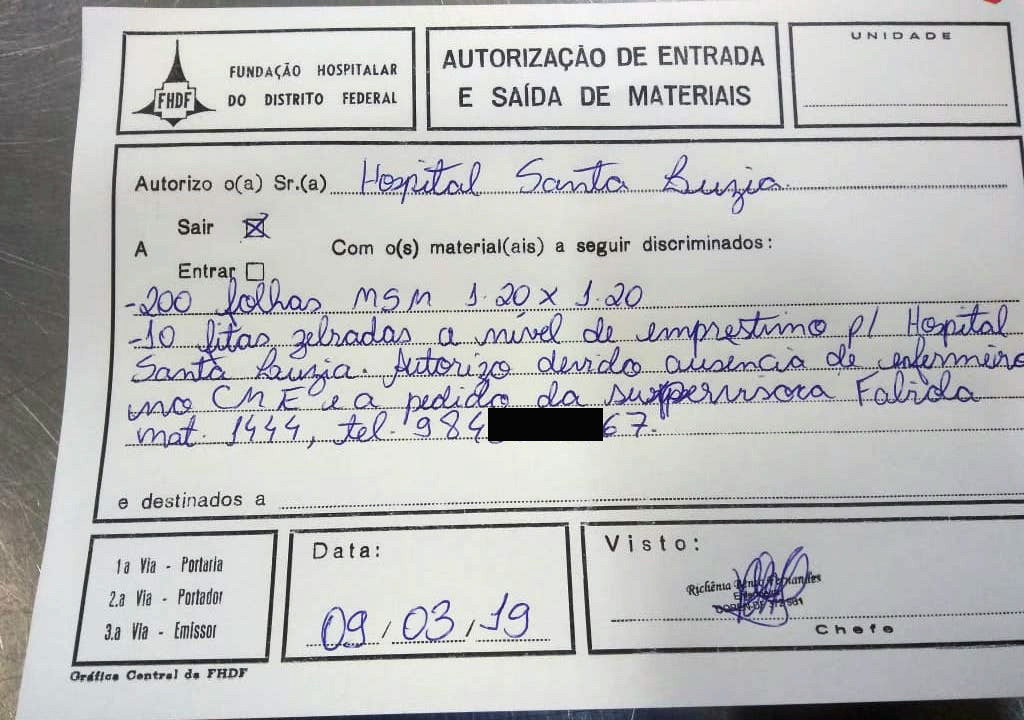 FUNDAÇÃO HOSPITALAR
DO DISTRITO FEDERAL
FHDF
AUTORIZAÇÃO DE ENTRADA
E SAÍDA DE MATERIAIS
UNIDADE
Autorizo o(a) Sr.(a) Hospital Santa Luzia.
Sair
A
Com o(s) material(ais) a seguir discriminados:
Entrar
-200 folhas MSM 1.20 x 1.20
-10 fitas zebradas a nível de emprestimo p/ Hospital
Santa Luzia. Autorizo devido ausencia de enfermeiro
no CME e a pedido da supervisora
mat. 1444, tel. 984 67.
e destinados a
1a Via - Portaria
2.a Via - Portador
3.a Via - Emissor
Data:
09/03/19
Visto:
Richênia Fernandes
Chefe
Gráfica Central da FHDF